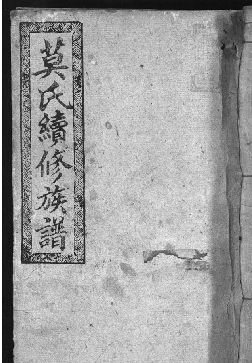 莫氏續修族譜